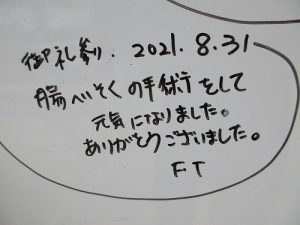 御礼参り. 2021.8.31
腸へいそくの手術をして
元気になりました。
ありがとうございました。
FT